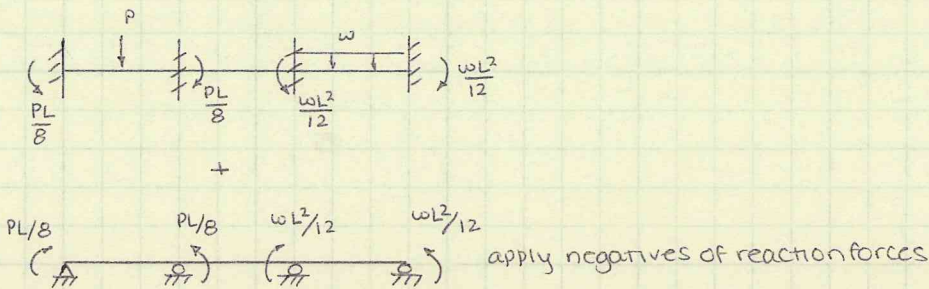 P
ω
PL/8
PL/8
ωL²/12
ωL²/12
+
PL/8
PL/8
ωL²/12
ωL²/12
apply negatives of reaction forces